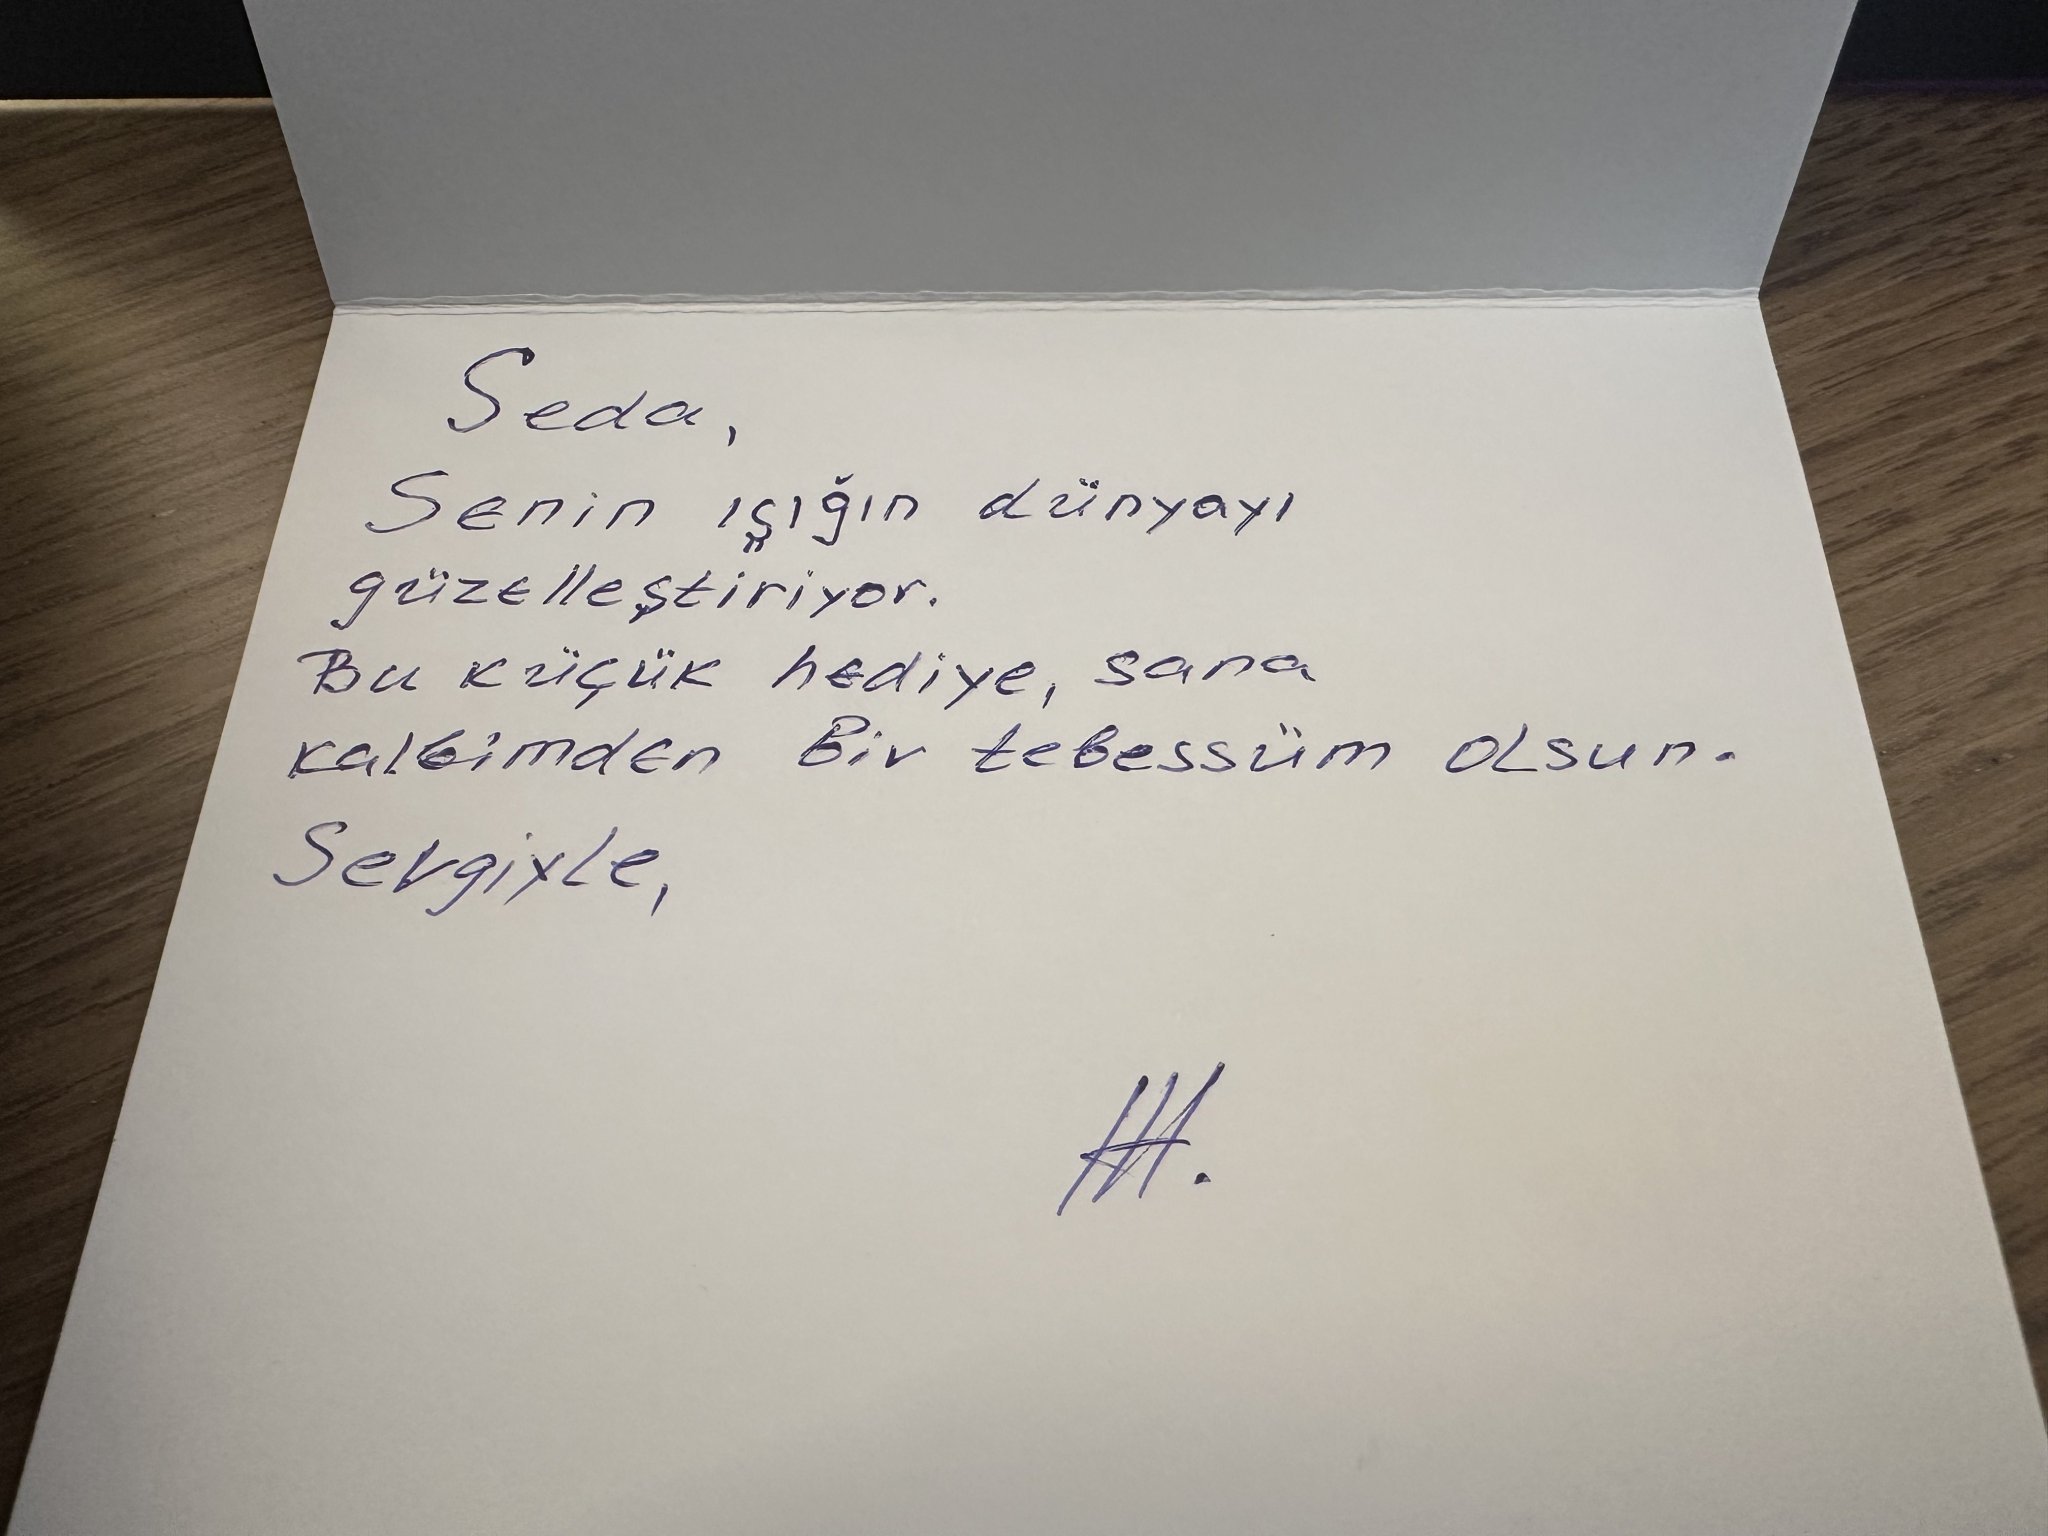 Seda,
Senin ışığın dünyayı
güzelleştiriyor.
Bu küçük hediye, sana
kalbimden Bir tebessüm olsun.
Sevgiyle,